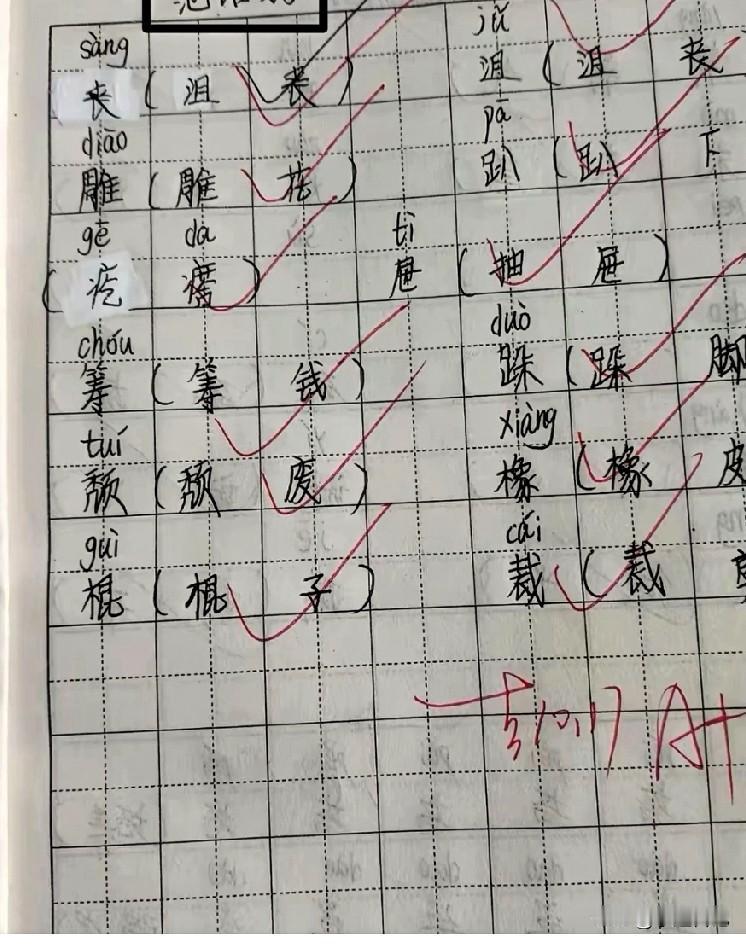 sàng jǔ
丧 ( 沮 丧 ) 沮 ( 沮 丧
diāo pā
雕 ( 雕 花 ) 趴 ( 趴 下
gē da tì
( 疙 瘩 ) 屉 ( 抽 屉 )
chóu duò
筹 ( 筹 钱 ) 跺 ( 跺 脚
tuí xiàng
颓 ( 颓 废 ) 橡 ( 橡 皮
gùi cái
棍 ( 棍 子 ) 裁 ( 裁
10.17 A+